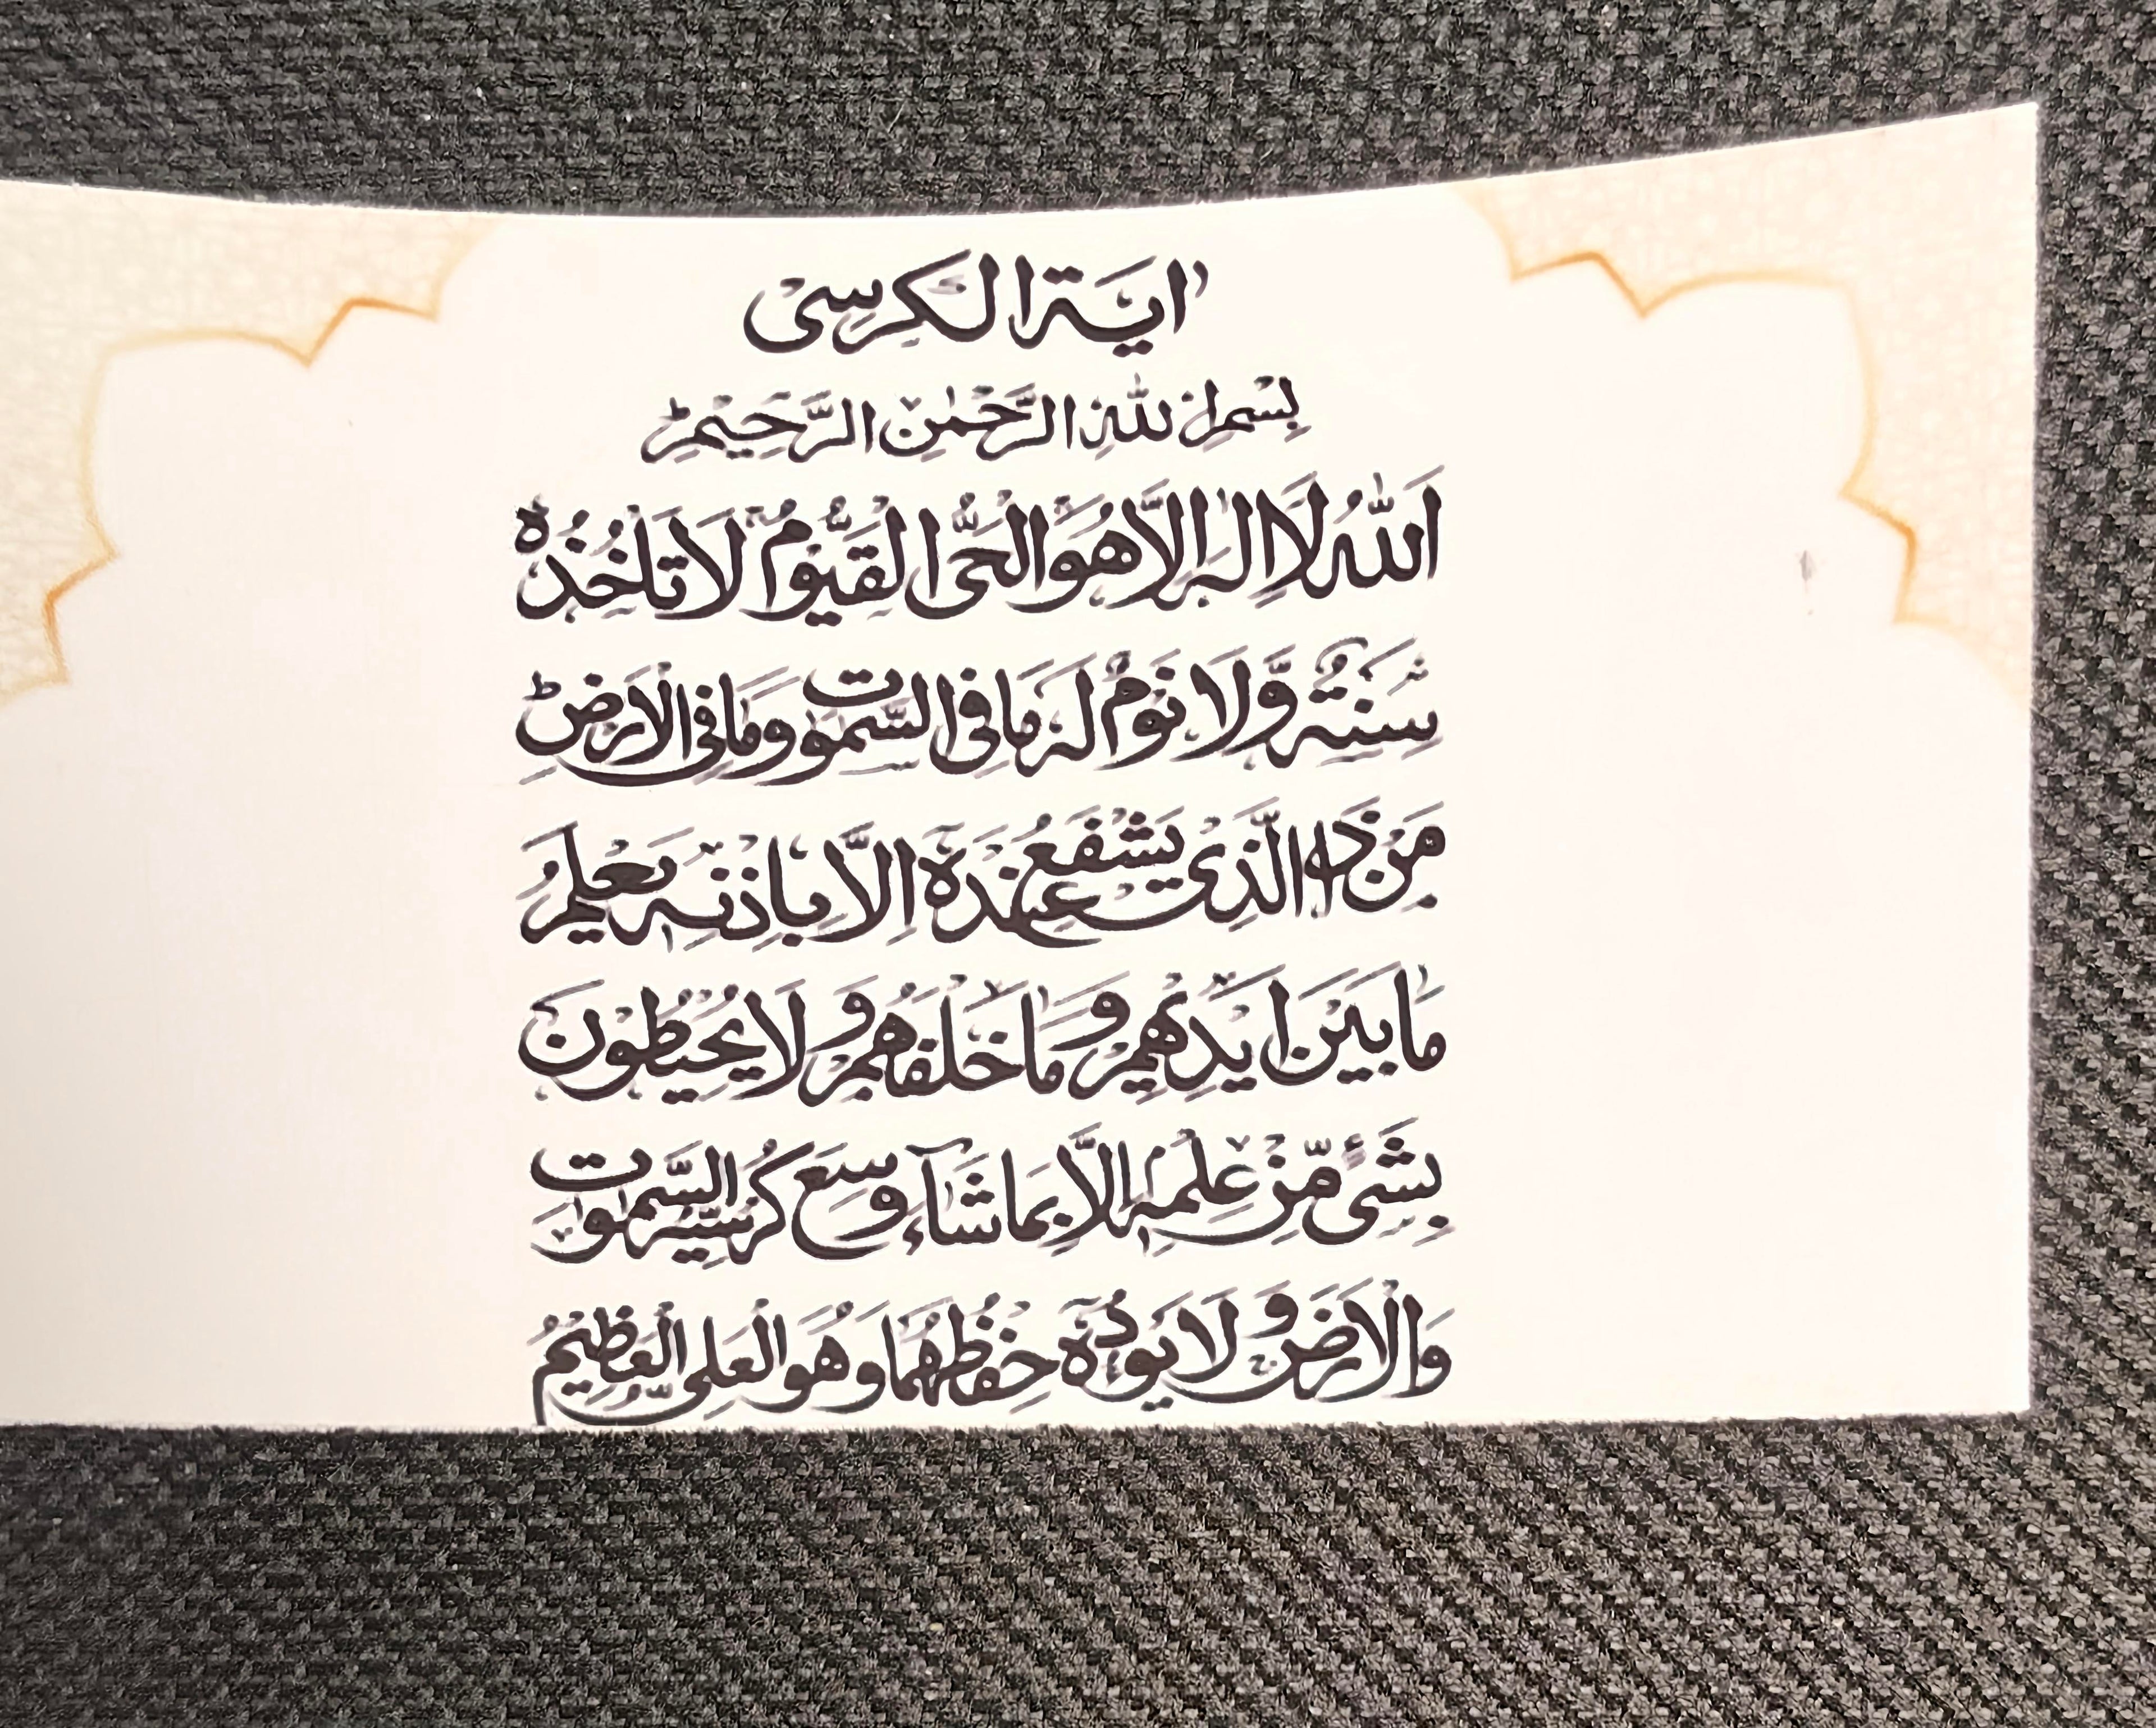 اٰیة الکرسی
بِسْمِ اللّٰهِ الرَّحْمٰنِ الرَّحِیْمِؕ
اَللّٰهُ لَاۤ اِلٰهَ اِلَّا هُوَ الْحَیُّ الْقَیُّوْمُ لَا تَاْخُذُهٗ
سِنَةٌ وَّلَا نَوْمٌ لَهٗ مَا فِی السَّمٰوٰتِ وَمَا فِی الْاَرْضِؕ
مَنْ ذَا الَّذِیْ یَشْفَعُ عِنْدَهٗۤ اِلَّا بِاِذْنِهٖ یَعْلَمُ
مَا بَیْنَ اَیْدِیْهِمْ وَمَا خَلْفَهُمْ وَلَا یُحِیْطُوْنَ
بِشَیْءٍ مِّنْ عِلْمِهٖۤ اِلَّا بِمَا شَآءَ وَسِعَ کُرْسِیُّهُ السَّمٰوٰتِ
وَالْاَرْضَ وَلَا یَـُٔوْدُهٗ حِفْظُهُمَا وَهُوَ الْعَلِیُّ الْعَظِیْمُ